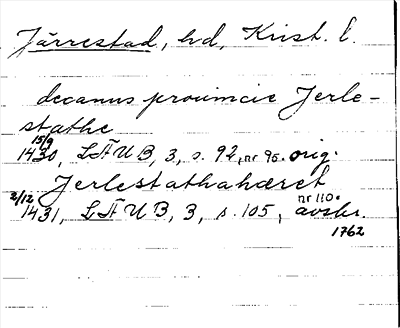 Järrestad, hd, Krist. l.
decanus prouincie Jerle-
stathe
15/9
1430, LÄUB, 3, s. 92, nr 95. orig.
Jerlestathahæret
2/12
1431, LÄUB, 3, s. 105, nr 110. avskr.
1762